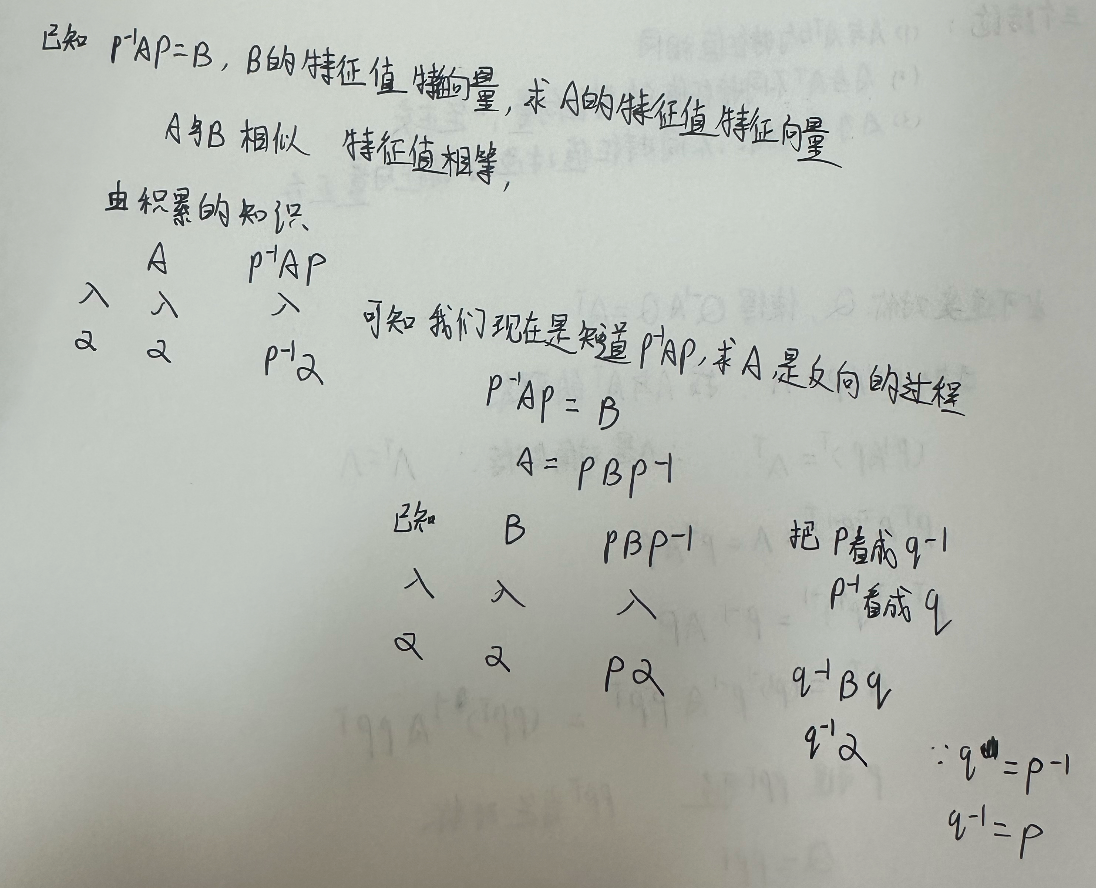 已知 P⁻¹AP=B, B的特征值 特向量, 求 A的特征值 特征向量
A与B 相似 特征值相等,
由积累的知识
A P⁻¹AP
λ λ λ
α α P⁻¹α
可知 我们现在是知道 P⁻¹AP, 求 A, 是反向的过程
P⁻¹AP = B
A = PBP⁻¹
已知 B PBP⁻¹
λ λ λ
α α Pα
把 P看成 q⁻¹
P⁻¹看成 q
q⁻¹Bq
q⁻¹α
∵ q = P⁻¹
q⁻¹ = P